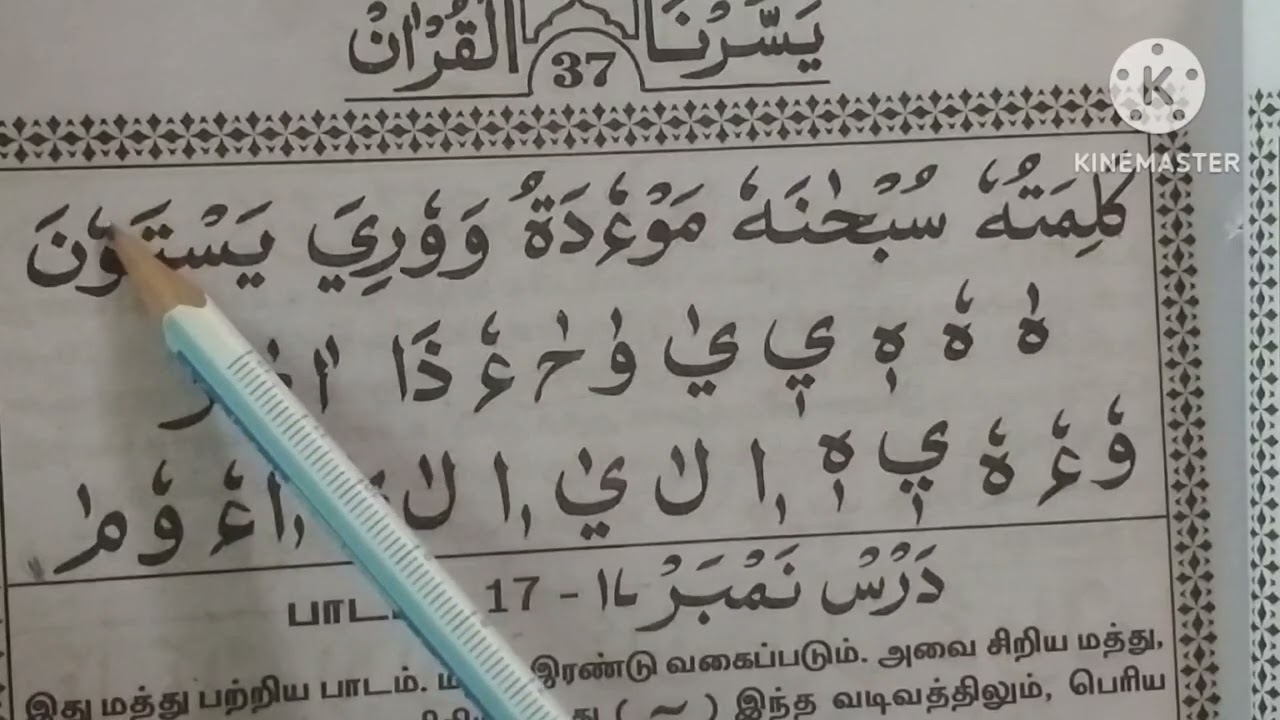 يَسَّرْنَا 37 الْقُرْاٰنْ
KINEMASTER
كَلِمَتُهٗ سُبْحٰنَهٗ مَوْءٗدَةُ وَوٗرِيَ يَسْتَوٗنَ
هٰ هٗ هٖ يٖ يٰ وٰ حٰ ءٗ ذَا
وٗ ءٗ هٗ يٖ هٖ اٖ لٰ يٰ اٖ لٰ ءٗ وٗ مٰ
دَرْسْ نَمْبَرْ ١٧ - 17
இது மத்து பற்றிய பாடம். இரண்டு வகைப்படும். அவை சிறிய மத்து,
( ~ ) இந்த வடிவத்திலும், பெரிய